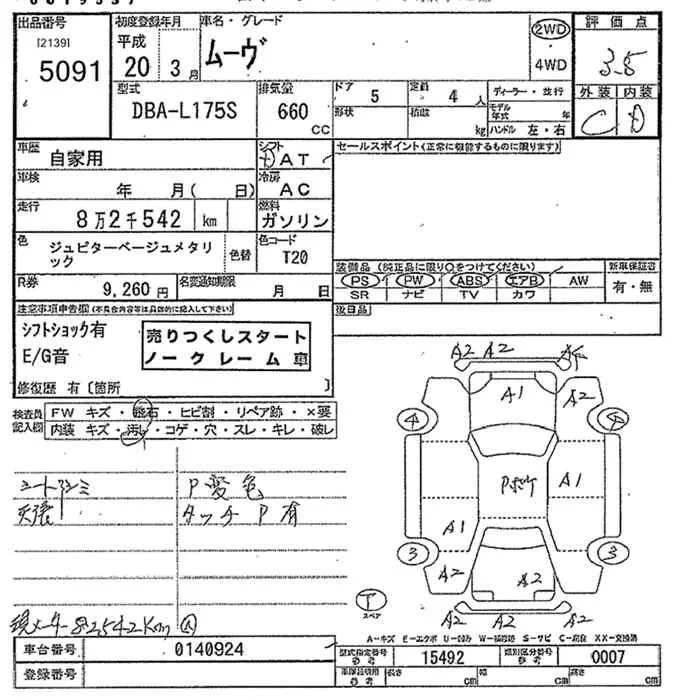 出品番号
[2139]
5091
初度登録年月
平成
20 3月
車名・グレード
ムーヴ
2WD
4WD
評価点
3.5
外装 内装
C D
型式
DBA-L175S
排気量
660
CC
ドア
5
定員
4 人
形状
積載
kg
ディーラー・並行
モデル年式 年
ハンドル 左・右
車歴
自家用
シフト
AT
車検
年 月( 日)
冷房
AC
走行
8万2千542 km
燃料
ガソリン
色
ジュピターベージュメタリック
色替
色コード
T20
R券
9,260円
名変通知期限
月 日
セールスポイント(正常に機能するものに限ります)
装備品(純正品に限り○をつけてください)
PS PW ABS エアB AW
SR ナビ TV カワ
新車保証書
有・無
後日品
注意事項申告欄(不具合内容等は具体的に記入して下さい)
シフトショック有
E/G音
売りつくしスタート
ノークレーム車
修復歴 有〔箇所 〕
検査員記入欄
FW キズ・飛石・ヒビ割・リペア跡・×要
内装 キズ・汚れ・コゲ・穴・スレ・キレ・破レ
シートシミ
天張
P変色
タッチP有
現メーター82542Km
A2 A2
A1
A2
4
A1
A1
3 3
A2
A2
A2 A2 A2
T
スペア
A-キズ E-エクボ U-凹み W-補修跡 S-サビ C-腐食 XX-交換済
車台番号
0140924
登録番号
型式指定番号
参考
15492
類別区分番号
参考
0007
車庫証明用
参考
長さ cm
幅 cm
高さ cm